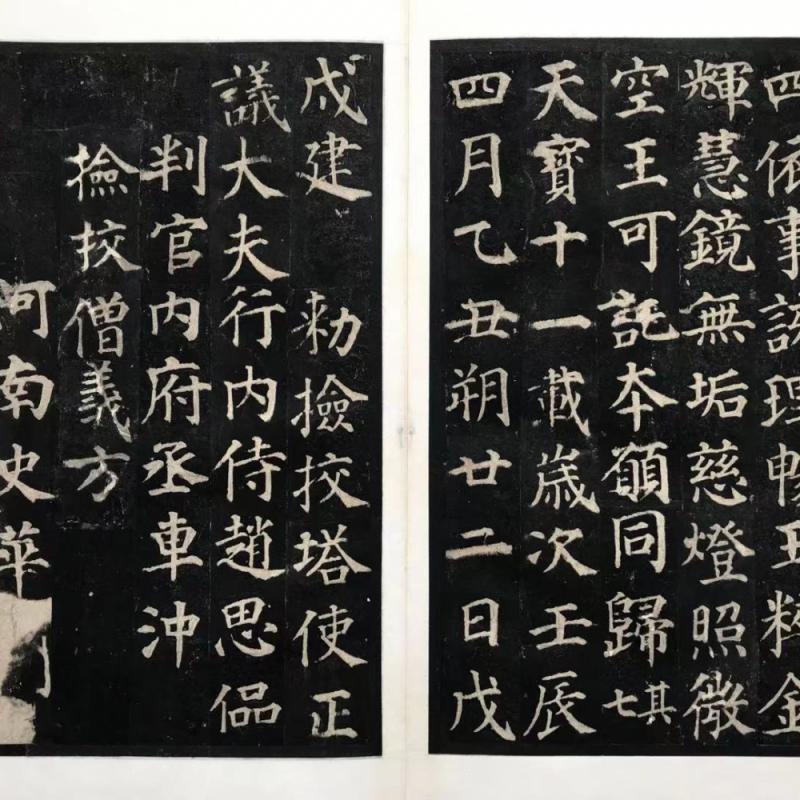 四依事該理暢玉粹金
輝慧鏡無垢慈燈照微
空王可託夲願同歸其七
天寶十一載歲次壬辰
四月乙丑朔廿二日戊
戌建 勅撿挍塔使正
議大夫行內侍趙思偘
判官內府丞車沖
撿挍僧義方
河南史華